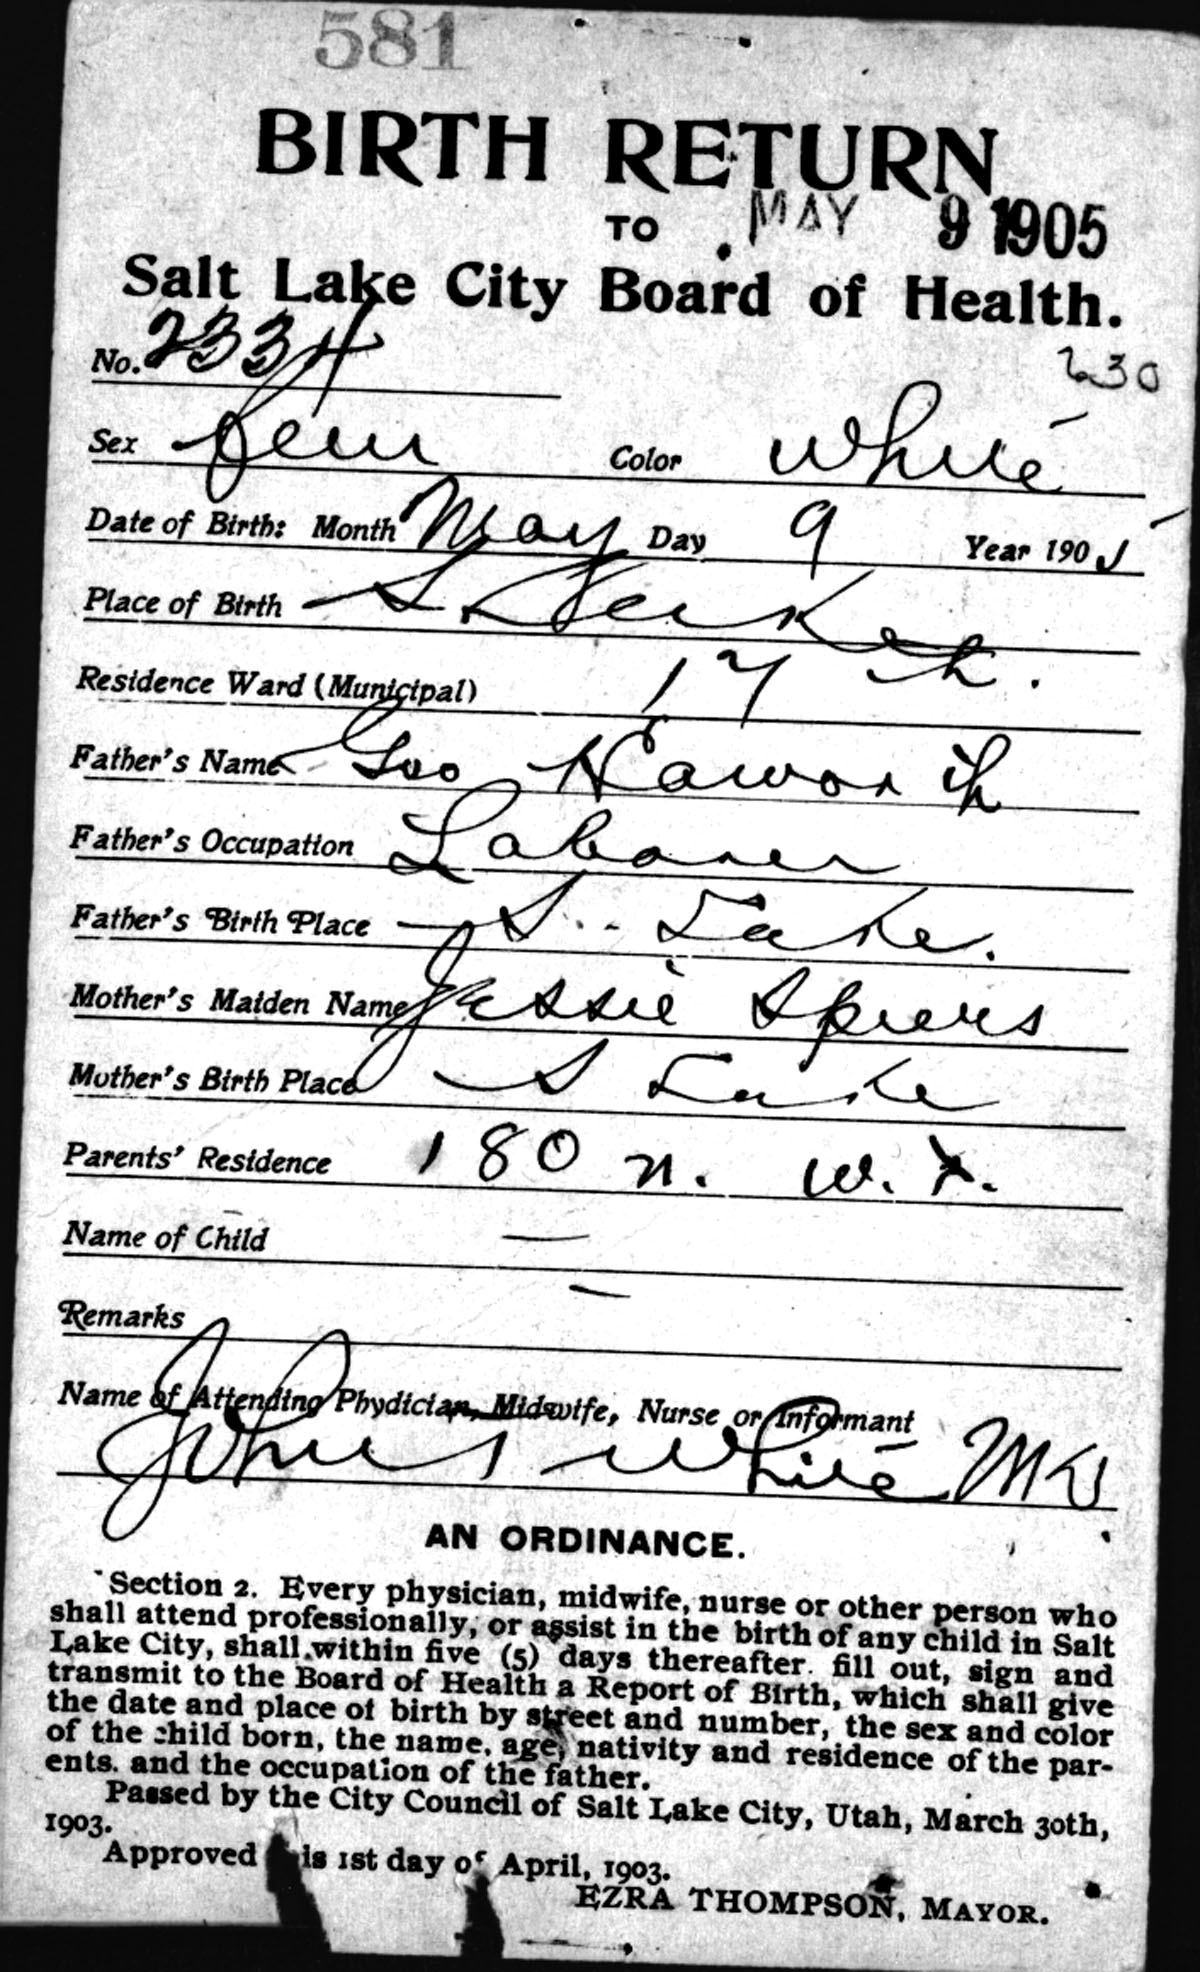 581
BIRTH RETURN
TO MAY 9 1905
Salt Lake City Board of Health.
No. 2334
230
Sex Fem Color White
Date of Birth: Month May Day 9 Year 1905
Place of Birth S
Residence Ward (Municipal) 17 th.
Father's Name Geo Haworth
Father's Occupation Laborer
Father's Birth Place S. Lake.
Mother's Maiden Name Jessie Spiers
Mother's Birth Place S Lake
Parents' Residence 180 N. W. T.
Name of Child —
Remarks —
Name of Attending Phydician, Midwife, Nurse or Informant
John White MD
AN ORDINANCE.
Section 2. Every physician, midwife, nurse or other person who
shall attend professionally, or assist in the birth of any child in Salt
Lake City, shall within five (5) days thereafter fill out, sign and
transmit to the Board of Health a Report of Birth, which shall give
the date and place of birth by street and number, the sex and color
of the child born, the name, age, nativity and residence of the par-
ents. and the occupation of the father.
Passed by the City Council of Salt Lake City, Utah, March 30th,
1903.
Approved is 1st day of April, 1903.
EZRA THOMPSON, MAYOR.